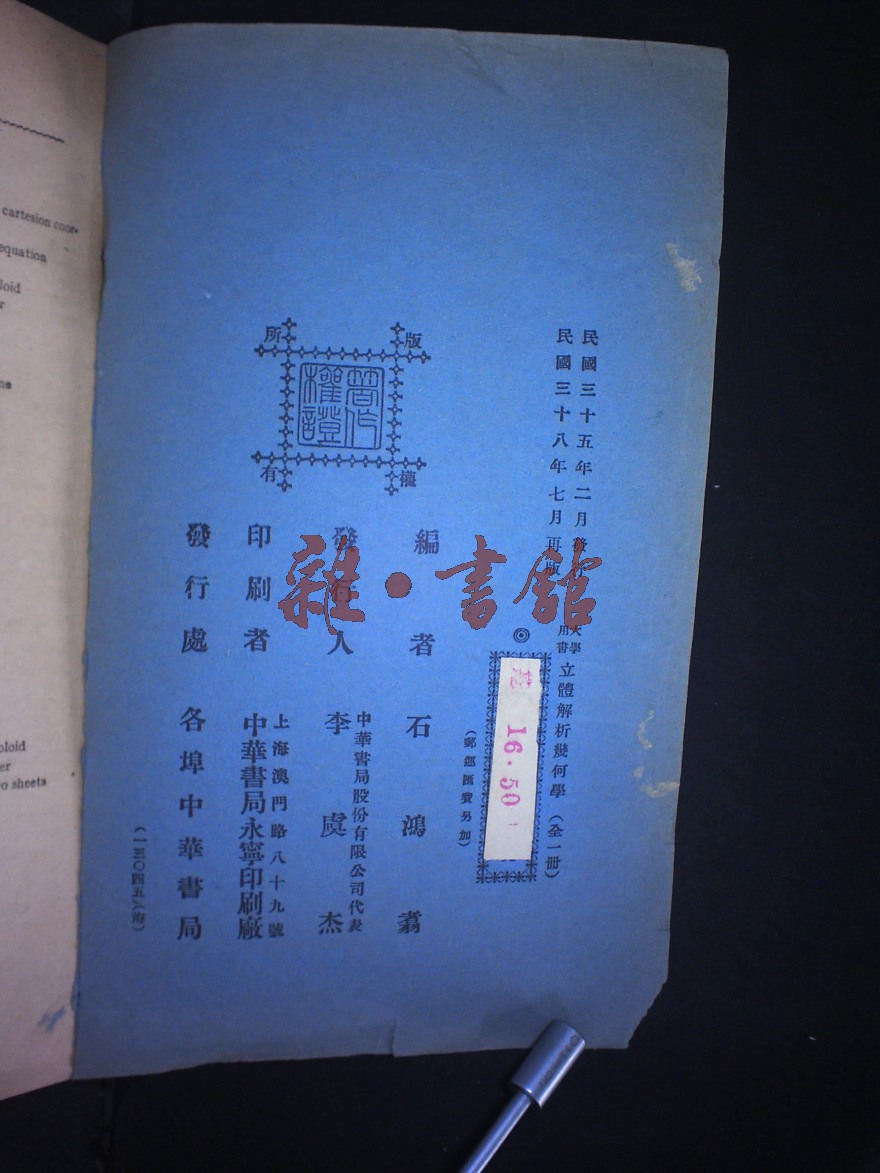 民國三十五年二月發行
民國三十八年七月再版
大學用書 立體解析幾何學 (全一冊)
◎
16.50
(郵運匯費另加)
版權所有
著作權證
編者 石鴻翥
發行人 李虞杰
中華書局股份有限公司代表
印刷者 中華書局永寧印刷廠
上海澳門路八十九號
發行處 各埠中華書局
(一三〇四五)(海)
雜·書館
cartesion coor-
equation
loid
r
ne
oloid
er
o sheets